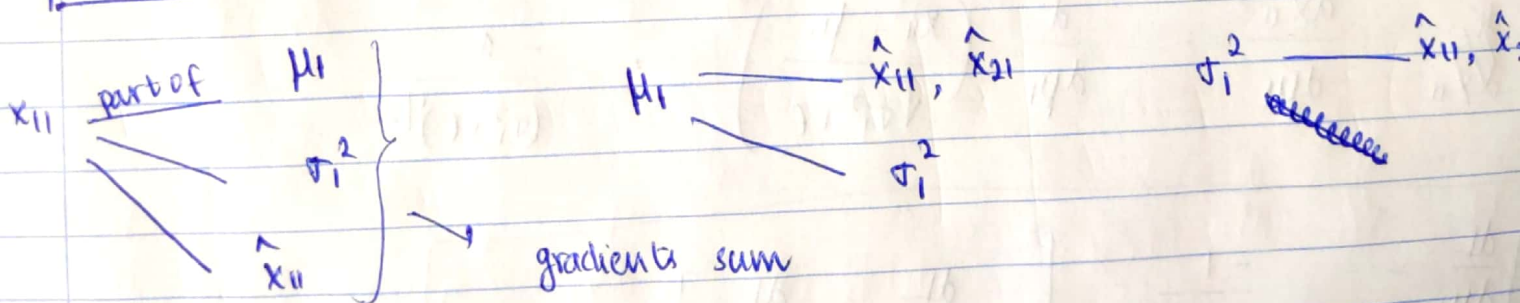 x₁₁ part of μ₁
σ₁²
x̂₁₁
gradients sum
μ₁ x̂₁₁, x̂₂₁
σ₁²
σ₁² x̂₁₁, x̂